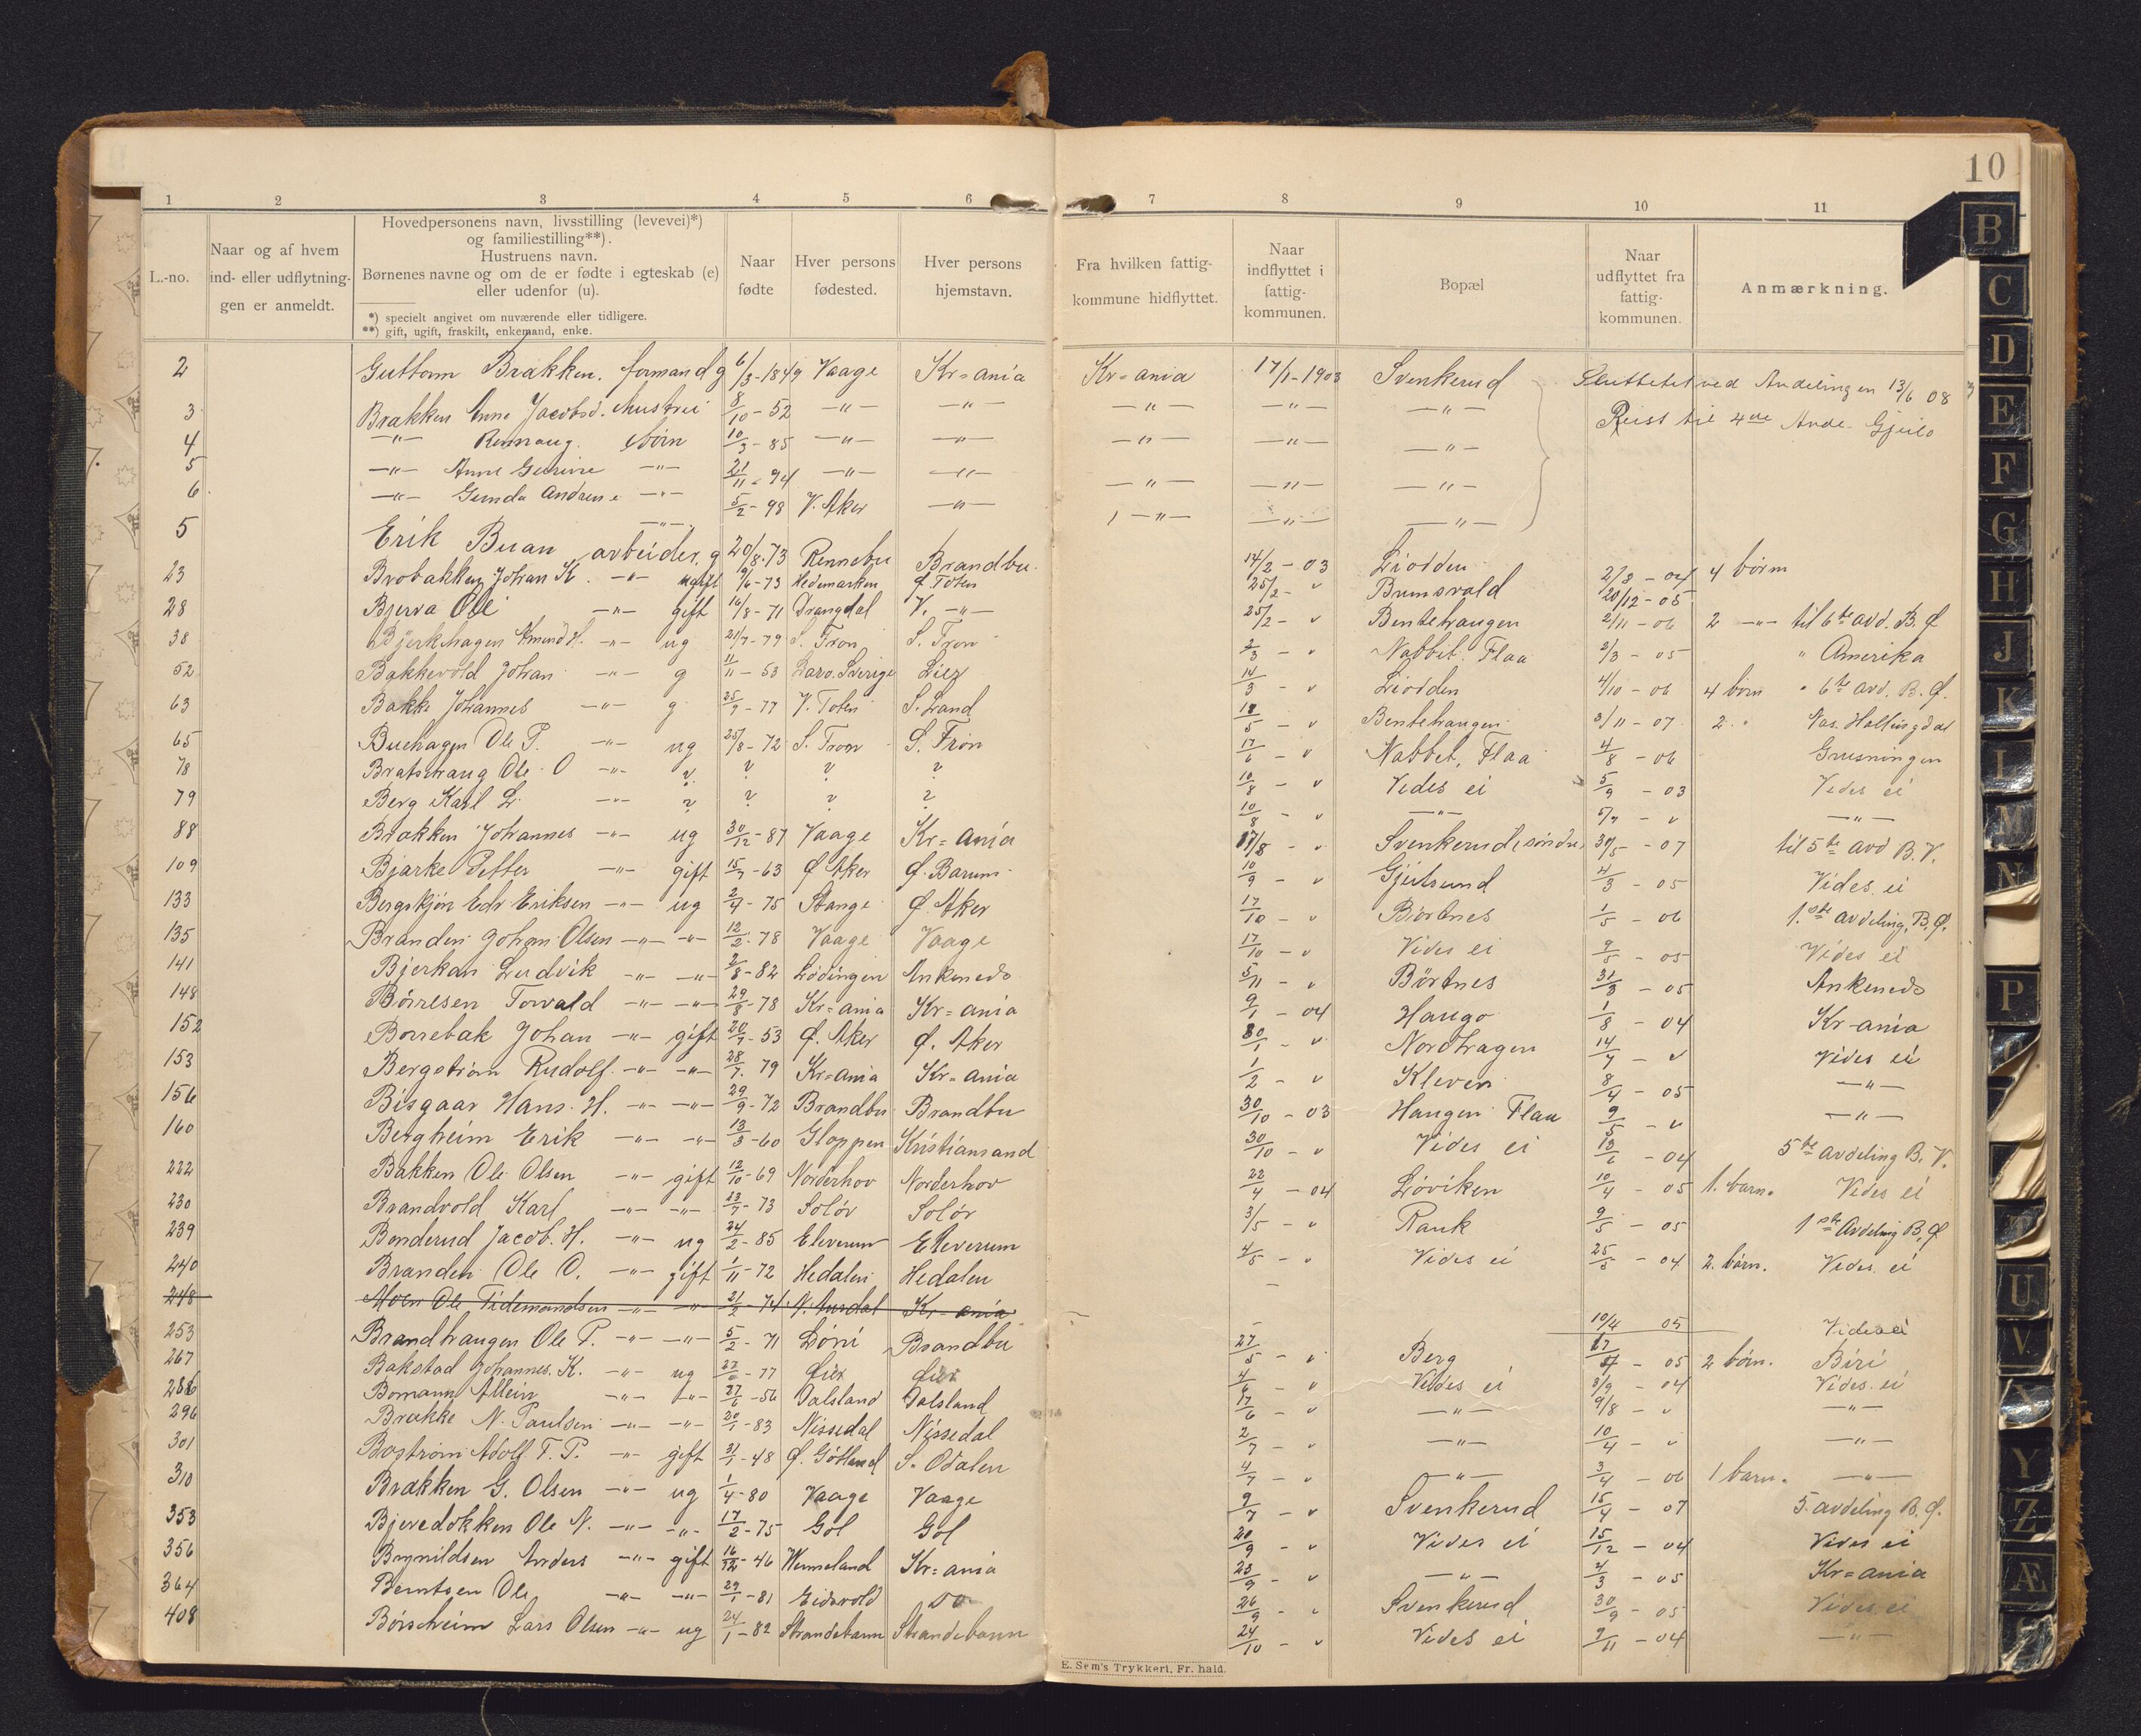 10
1 2 3 4 5 6 7 8 9 10 11
L.-no.
Naar og af hvem
ind- eller udflytnin-
gen er anmeldt.
Hovedpersonens navn, livsstilling (levevei)*)
og familiestilling**).
Hustruens navn.
Børnenes navne og om de er fødte i egteskab (e)
eller udenfor (u).
*) specielt angivet om nuværende eller tidligere.
**) gift, ugift, fraskilt, enkemand, enke.
Naar
fødte
Hver persons
fødested.
Hver persons
hjemstavn.
Fra hvilken fattig-
kommune hidflyttet.
Naar
indflyttet i
fattig-
kommunen.
Bopæl
Naar
udflyttet fra
fattig-
kommunen.
Anmærkning.
2 Guttorm Brakken. formand g 6/3-1849 Vaage Kr=ania Kr=ania 17/1-1903 Svenkerud Sluttet ved Avdelingen 13/6 08
3 Brakken Anne Jacobsd. hustrui 8/10-52 -"- -"- -"- -"- -"- Reist til 4de Avde. Gjeilo
4 -"- Rønnaug. børn 10/3-85 -"- -"- -"- -"- -"-
5 -"- Anne Gurine -"- 21/11-94 -"- -"- -"- -"- -"-
6 -"- Gunda Andrine -"- 5/2-98 V. Aker -"- -"- -"- -"-
5 Erik Buan arbeider, g 20/8-73 Rennebu Brandbu 14/2-03 Liodden 2/3-04 4 børn
23 Brobakken Johan K. -"- ugift 9/6-73 Hedemarken Ø. Toten 25/2- " Bumsvald 20/12-05
28 Bjerva Ole -"- gift 16/8-71 Drangdal V. -"- 25/2- " Bentehaugen 2/11-06 2 -"- til 6te avd. B.Ø
38 Bjerkehagen Amund H. -"- ug 21/7-79 S. Fron S. Fron 2/3- " Nabbet. Flaa 2/3-05 " Amerika
52 Bakkevold Johan -"- g 11/11-53 Larv. Sverige Lier 14/3- " Liodden 4/10-06 4 børn " 6te avd. B.Ø.
63 Bakke Johannes -"- g 25/9-77 V. Toten S. Land 18/5- " Bentehaugen 3/11-07 2 " Nas. Hallingdal
65 Buehagen Ole P. -"- ug 25/8-72 S. Fron S. Fron 17/6- " Nabbet, Flaa 4/8-06 Grusningen
78 Bratshaug Ole O -"- ? ? ? ? 10/8- " Vides ei 5/9-03 Vides ei
79 Berg Karl L. -"- ? ? ? ? 10/8- " -"- 5/9- " -"-
88 Brakken Johannes -"- ug 30/12-87 Vaage Kr=ania 17/8- " Svenkerud søndre 30/5-07 til 5te avd B.V.
109 Bjarke Petter -"- gift 15/7-63 Ø Aker Ø. Barum 10/9- " Gjeilrund 4/3-05 Vides ei
133 Bergskjøn Edv Eriksen -"- ug 2/4-75 Stange Ø. Aker 17/10- " Børtnes 1/5-06 1.ste avdeling. B.Ø.
135 Branden Johan Olsen -"- -"- 12/2-78 Vaage Vaage 17/10- " Vides ei 9/5-05 Vides ei
141 Bjerkan Ludvik -"- -"- 2/8-82 Lødingen Ankenes 5/11- " Børtnes 31/3-05 Ankenes
148 Børresen Torvald -"- -"- 29/8-78 Kr=ania Kr=ania 9/1-04 Haugo 1/8-04 Kr-ania
152 Borrebak Johan -"- gift 20/7-53 Ø. Aker Ø. Aker 30/1- " Nordhagen 14/7- " Vides ei
153 Bergstrøm Rudolf -"- -"- 28/7-79 Kr=ania Kr=ania 1/2- " Kleven 8/4-05 -"-
156 Bisgaar Hans H. -"- -"- 29/9-72 Brandbu Brandbu 30/10-03 Haugen Flaa 9/5- " -"-
160 Bergheim Erik -"- -"- 13/3-60 Gloppen Kristiansand 30/10- " Vides ei 13/6-04 5te avdeling B.V.
222 Bakken Ole Olsen -"- gift 12/10-69 Norderhov Norderhov 22/4-04 Løviken 10/4-05 1. barn. Vides ei
230 Brandvold Karl -"- -"- 23/7-73 Solør Solør 3/5- " Rauk 9/5-05 1ste Avdeling B.Ø
239 Bonderud Jacob. H. -"- ug 24/2-85 Elverum Elverum 4/5- " Vides ei 25/5-04 2. børn. Vides ei
240 Branden Ole O. -"- gift 1/11-72 Hedalen Hedalen -
248 Moen Ole Tidemandsen -"- -"- 21/2-74 N. Aurdal Kr=ania - 10/4 05 Vides ei
253 Brandhaugen Ole P. -"- -"- 5/2-71 Lôni Brandbu 27/5- " Berg 17/4-05 2 børn. Biri
267 Bakstad Johannes. K. -"- ug -77 Lier Lier 4/6- " Vides ei 8/9-04 Vides ei
286 Bomann Allein -"- -"- 27/6-56 Dalsland Dalsland 17/6- " -"- 9/8- " -"-
296 Brakke N. Paulsen -"- -"- 20/1-83 Nissedal Nissedal 2/7- " -"- 10/4- " -"-
301 Bostrøm Adolf T. P. -"- gift 31/1-48 Ø. Götland S. Odalen 4/7- " -"- 3/4-06 1 barn. -"-
310 Brakken G. Olsen -"- ug 1/4-80 Vaage Vaage 9/7- " Svenkerud 15/4-07 5. avdeling B.Ø.
353 Bjøredokken Ole N. -"- -"- 17/2-75 Gol Gol 20/9- " Vides ei 15/12-04 Vides ei
356 Brynildsen Anders -"- gift 16/12-46 Wermeland Kr=ania 23/9- " -"- 4/3-05 Kr=ania
364 Berntsen Ole -"- -"- 29/1-81 Eidsvold Do 26/9- " Svenkerud 30/9-05 Vides ei
408 Børscheim Lars Olsen -"- ug 24/1-82 Strandebarm Strandebarm 24/10- " Vides ei 9/11-04 -"-
E. Sem's Trykkeri, Fr. hald.
B
C
D
E
F
G
H
J
K
L
M
N
P
U
V
X
Y
Z
Æ